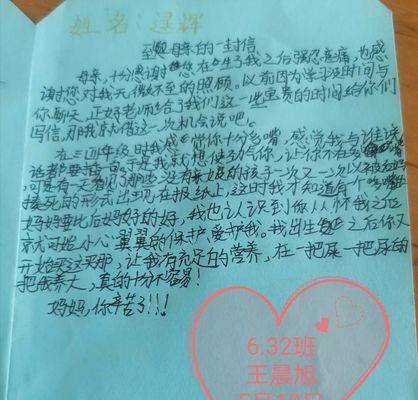 姓名：
致母亲的一封信
母亲，十分感谢您在生了我之后强忍疼痛，也感
谢您对我无微不至的照顾。以前因为学习没时间与
你聊天，正好老师给了我们这一些宝贵的时间给你们
写信，那我就借这一次机会说吧。
在三四年级时我感觉你十分多嘴，感觉我与谁说
话都要管，于是我就想使劲气你，让你不在
可是有一天看见了那些没有妈妈的孩子一次又一次以被
死的形式出现在报纸上，这时我才知道有个嘴
妈妈要比后妈好的好，我也认识到你从怀我之后
就开始小心翼翼的保护，爱护我。我出生之后你又
开始买这买那，让我有充足的营养，在一把屎一把尿的
把我养大，真的十分不容易！
妈妈，你辛苦了！！！
6.32班
王晨旭
5月10日